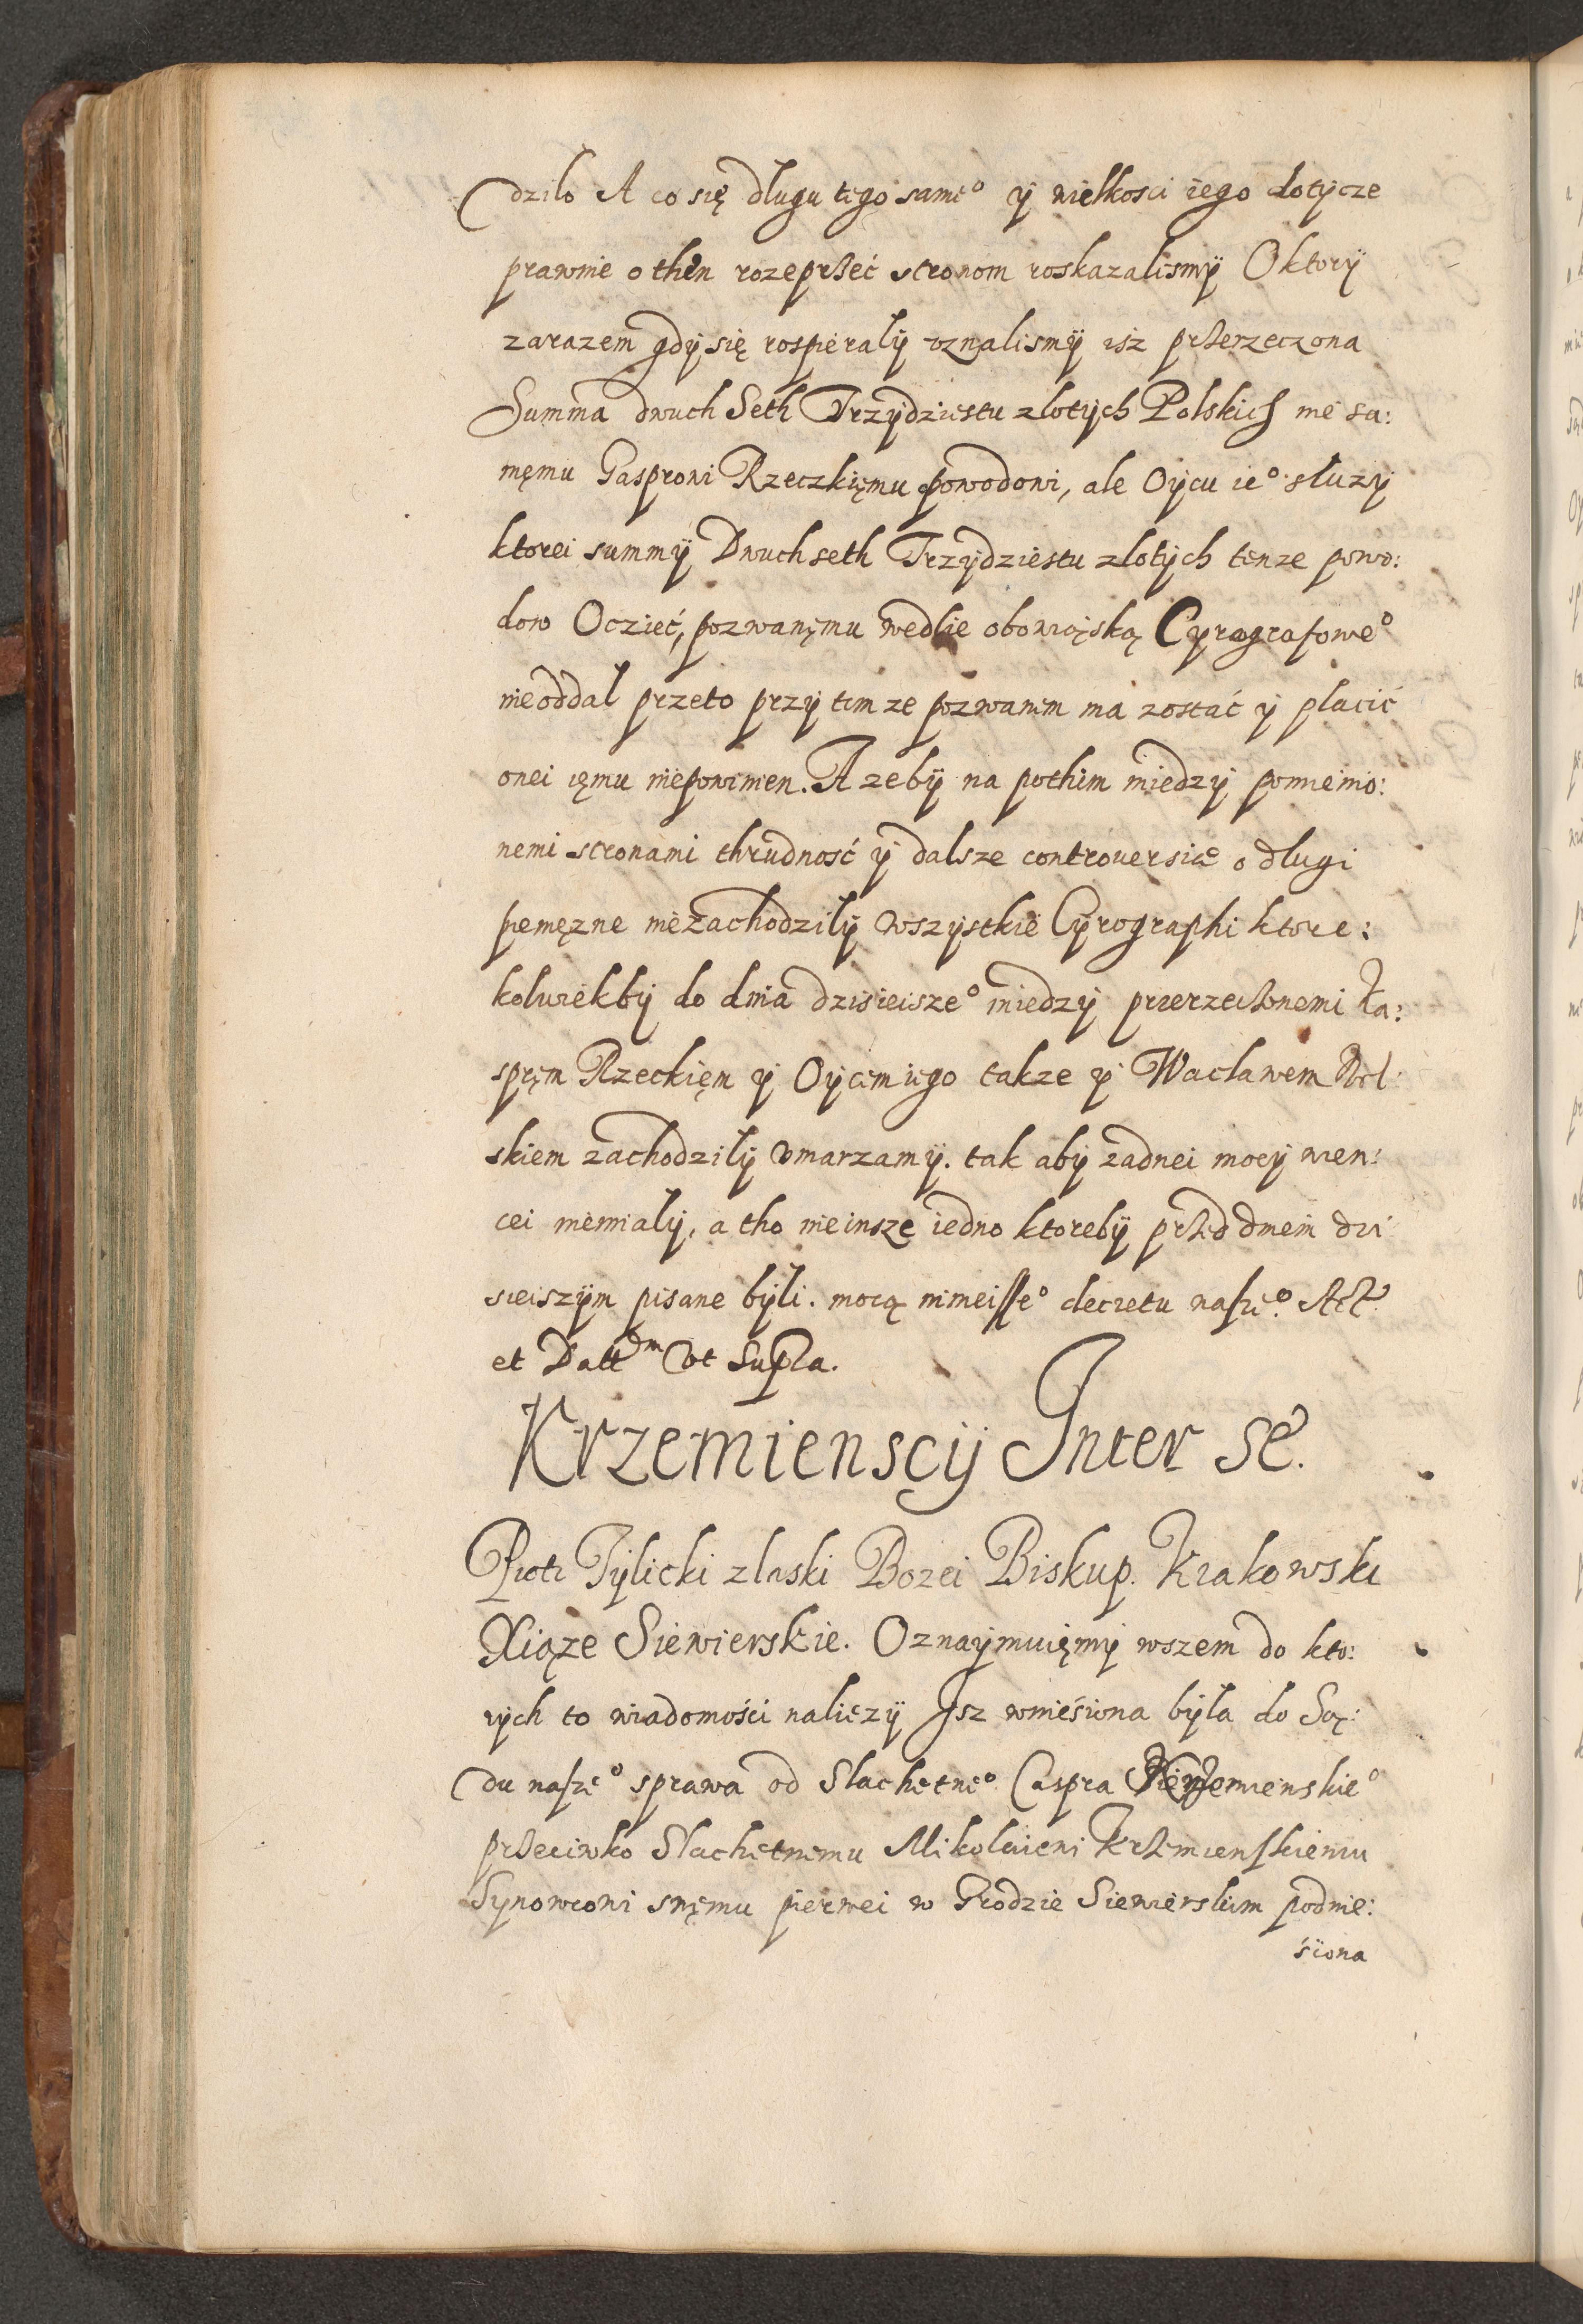 dziło A co się długu tego same° ÿ wielkosci iego dotÿcze
prawnie o then rozeprzeć stronom roskazalismÿ O ktorÿ
zarazem gdÿ się rospierałÿ vznalismÿ isz przerzeczona
Summa dwuch Seth Trzÿdziestu złotÿch Polskich nie sa:
męmu Gasprowi Rzeczkięmu powodowi, ale Oÿcu ie° służÿ
ktorei summÿ Dwuchseth Trzÿdziestu złotÿch tenze powo:
dow Oczieć, pozwanęmu wedlie obowiąską Cÿrografowe°
nieoddał przeto przÿ tem ze pozwanem ma zostać ÿ płacić
onei ięmu niepowinien. A zebÿ na pothim miedzÿ pomienio:
nemi stronami thrudność ÿ dalsze controuersiæ o długi
pienięzne niezachodziłÿ wszÿstkie Cÿrographi ktore:
koluiekbÿ do dnia dzisieisze° miedzÿ przerzeczonemi Ka:
spręm Rzeckięm ÿ Oÿcem iego takze ÿ Wacławem
skiem zachodziłÿ vmarzamÿ. tak abÿ żadnei mocÿ wien:
cei niemiałÿ, a tho nieinsze iedno ktorebÿ przed dniem dzi
sieiszÿm pisane bÿli. mocą ninieisse° decretu nasze°. Act
et Dattdm vt Supra.
Krzemienscÿ Inter se.
Piotr Tÿlicki z łaski Bozei Biskup. Krakowski
Xiąze Siewierskie. Oznaÿmuięmÿ wszem do kto:
rÿch to wiadomości naliezÿ Jsz wnieśiona bÿła do Są:
du nasze° sprawa od Slachetne° Caspra Krzemienskie°
przeciwko Slachetnemu Mikołaiewi Krzemienskiemu
Sÿnowcowi swęmu pierwei w Grodzie Siewierskim podnie:
śiona